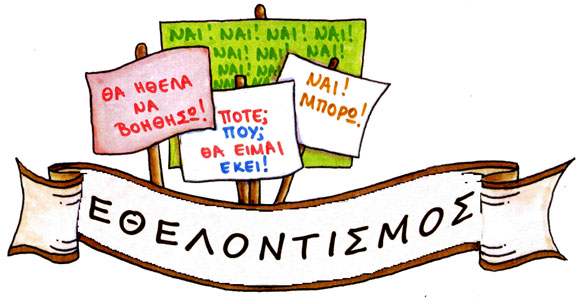 ΝΑΙ! ΝΑΙ! ΝΑΙ! ΝΑΙ! ΝΑΙ!
ΝΑΙ! ΝΑΙ! ΝΑΙ! ΝΑΙ!
ΝΑΙ! ΝΑΙ! ΝΑΙ! ΝΑΙ!
ΝΑΙ! ΝΑΙ!
ΘΑ ΗΘΕΛΑ
ΝΑ
ΒΟΗΘΗΣΩ!
ΠΟΤΕ;
ΠΟΥ;
ΘΑ ΕΙΜΑΙ
ΕΚΕΙ!
ΝΑΙ!
ΜΠΟΡΩ!
ΕΘΕΛΟΝΤΙΣΜΟΣ